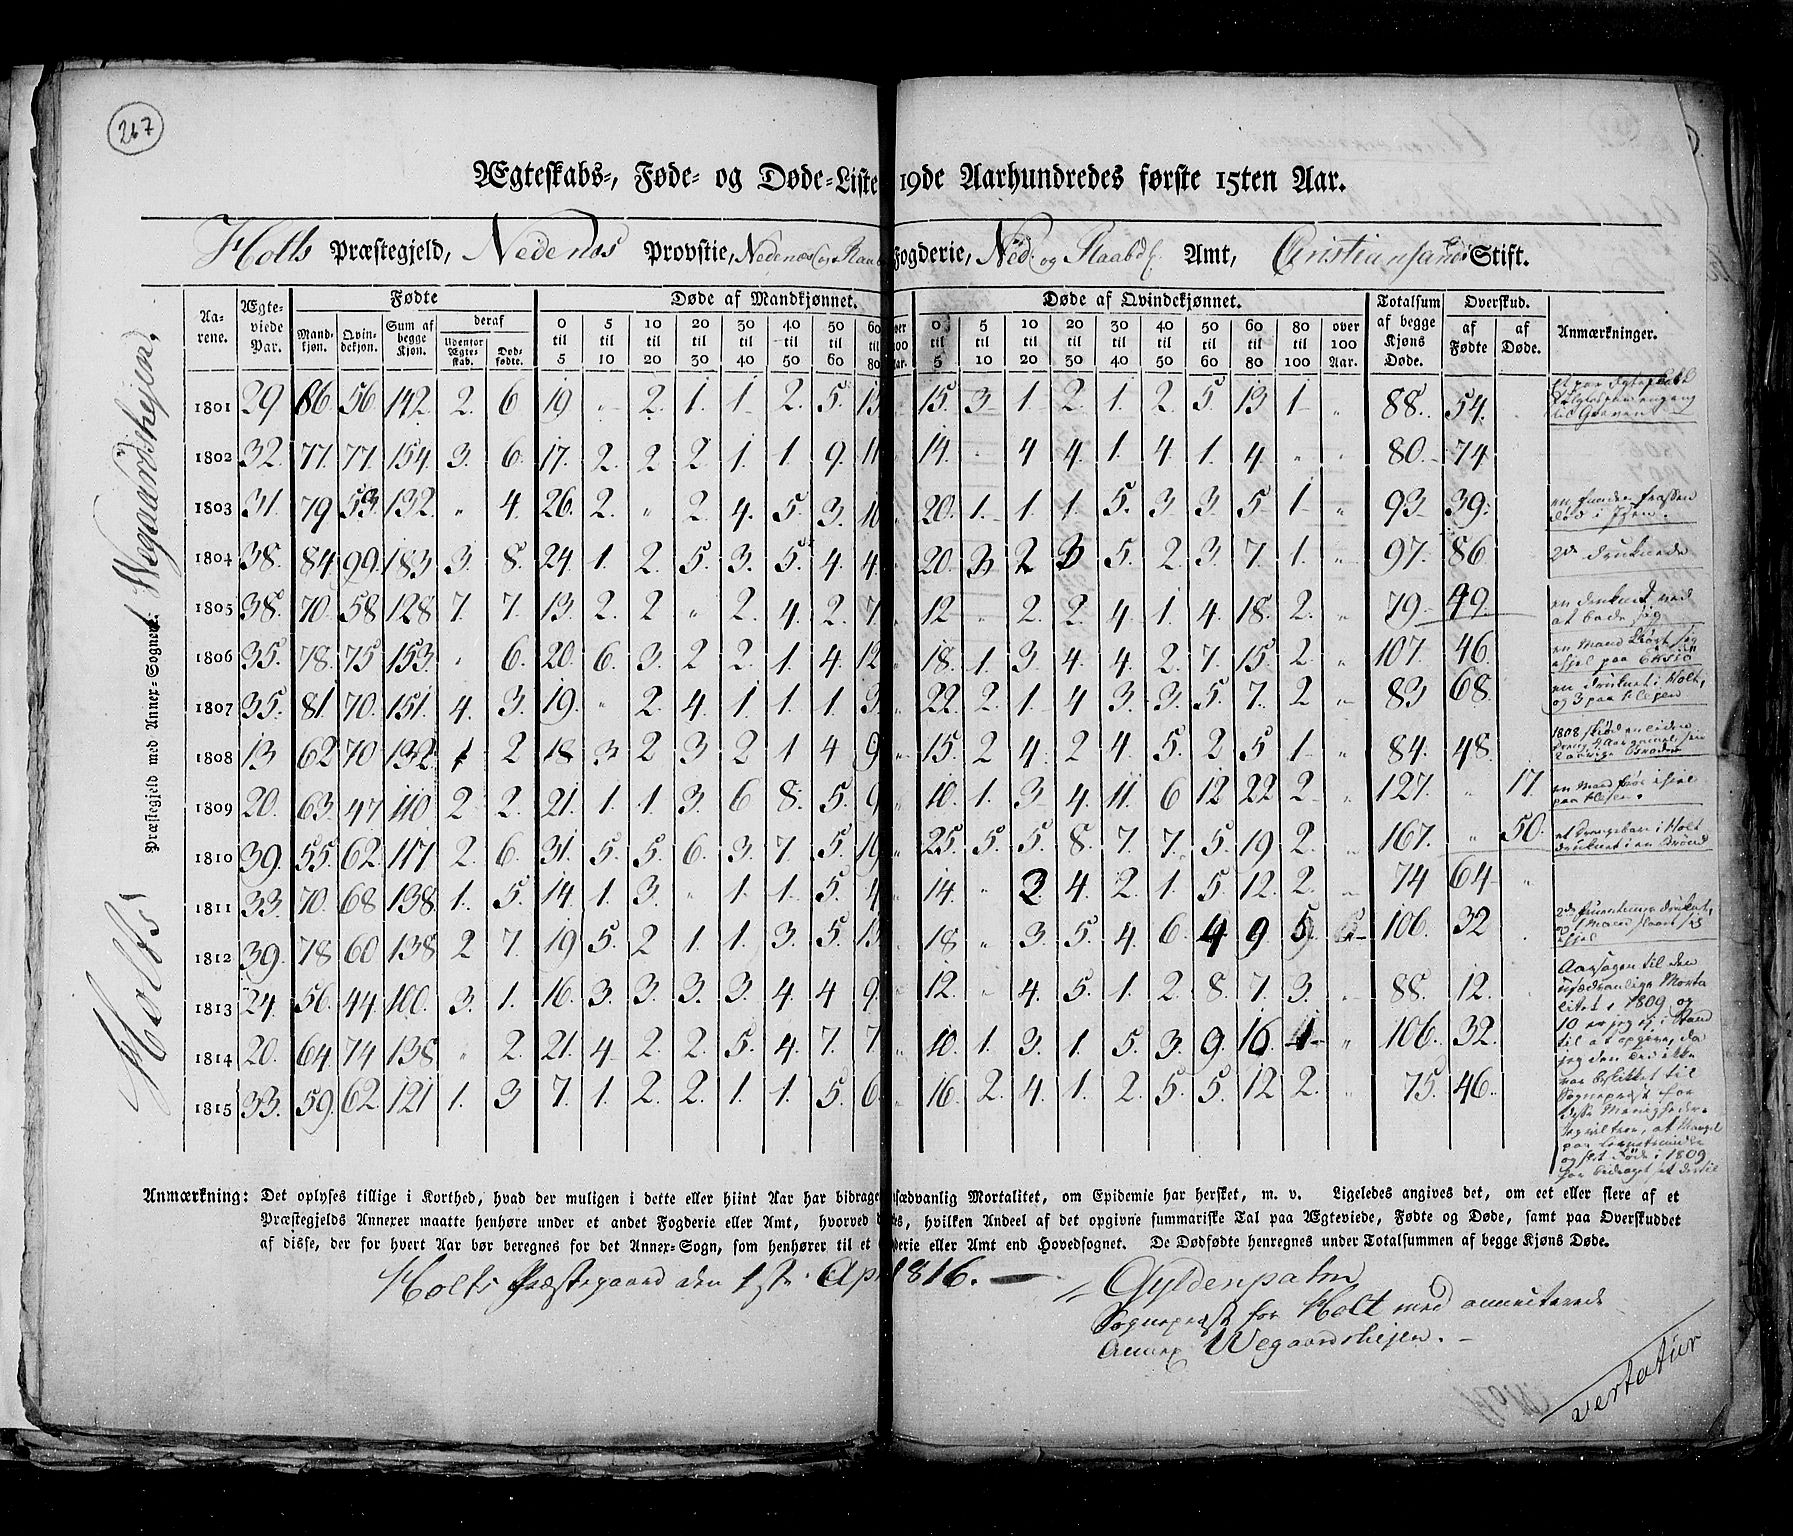 267
Ægteskabs-, Føde- og Døde-Liste 19de Aarhundredes første 15ten Aar.
Holts Præstegjeld, Nedenæs Provstie, Nedenæs og Raab Fogderie, Ned. og Raabd. Amt, Christiansands Stift.
Holts Præstegjeld med Annex-Sognene: Wegaardshejen.
Aarene. Ægteviede Par. Fødte Døde af Mandkjønnet. Døde af Qvindekjønnet. Totalsum af begge Kjøns Døde. Overskud. Anmærkninger.
Mandkjøn. Qvindekjøn. Sum af begge Kjøn. deraf Udenfor Ægteskab. Dødfødte. 0 til 5 5 til 10 10 til 20 20 til 30 30 til 40 40 til 50 50 til 60 60 til 80 over 100 Aar. 0 til 5 5 til 10 10 til 20 20 til 30 30 til 40 40 til 50 50 til 60 60 til 80 80 til 100 over 100 Aar. af Fødte af Døde.
1801 29 86 56 142 2 6 19 " 2 1 1 2 5 13 15 3 1 2 1 2 5 13 1 " 88 54
1802 32 77 77 154 3 6 17 2 2 2 1 1 9 11 14 " 4 4 1 4 1 4 " " 80 74
1803 31 79 53 132 " 4 26 2 " 2 4 5 3 10 20 1 1 1 5 3 3 5 1 " 93 39
1804 38 84 99 183 3 8 24 1 2 5 3 5 4 4 20 3 2 3 5 2 3 7 1 " 97 86 2de druknede
1805 38 70 58 128 7 7 13 2 2 " 2 4 2 7 12 " 2 2 4 1 4 18 2 " 79 49 en druknet ved at bade sig
1806 35 78 75 153 " 6 20 6 3 2 2 1 4 12 18 1 3 4 4 2 7 15 2 " 107 46
1807 35 81 70 151 4 3 19 " 2 4 1 1 1 3 22 2 1 4 3 3 5 7 2 " 83 68 en druknet i Holt, og 3 paa Hejen
1808 13 62 70 132 1 2 18 3 2 3 2 1 4 9 15 2 4 2 4 5 2 5 1 " 84 48
1809 20 63 47 110 2 2 21 1 1 3 6 8 5 9 10 1 3 4 11 6 12 22 2 " 127 " 17
1810 39 55 62 117 2 6 31 5 5 6 3 7 5 19 25 5 5 8 7 7 5 19 2 " 167 " 50
1811 33 70 68 138 1 5 14 1 3 " 1 1 5 4 14 " 3 4 2 1 5 12 2 " 74 64 "
1812 39 78 60 138 2 7 19 5 2 1 1 3 5 13 18 " 3 5 4 6 4 9 5 106 32
1813 24 56 44 100 3 1 16 3 3 3 3 4 4 9 12 " 4 5 1 2 8 7 3 " 88 12
1814 20 64 74 138 " 2 21 4 2 2 5 4 7 7 10 1 3 1 5 3 9 16 1 " 106 32
1815 33 59 62 121 1 3 7 1 2 2 1 1 5 6 16 2 4 1 2 5 5 12 2 75 46
Aarsagen til den usædvanlige Morta
litet i 1809 og
10 er jeg ej i Stand
til at opgive, da
jeg den Tid ikke
var beskikket til
Sognepræst for
disse Menigheder.
Jeg vil troe, at Mangel
paa
og slet Føde i 1809
har bidraget dertil
Anmærkning: Det oplyses tillige i Korthed, hvad der muligen i dette eller hiint Aar har bidraget usædvanlig Mortalitet, om Epidemie har hersket, m. v. Ligeledes angives det, om eet eller flere af et
Præstegjelds Annexer maatte henhøre under et andet Fogderie eller Amt, hvorved , hvilken Andeel af det opgivne summariske Tal paa Ægteviede, Fødte og Døde, samt paa Overskuddet
af disse, der for hvert Aar bør beregnes for det Annex-Sogn, som henhører til et eller Amt end Hovedsognet. De Dødfødte henregnes under Totalsummen af begge Kjøns Døde.
Holts Præstegaard den 1ste Ap 1816.
Gyldenpalm
Sognepræst for Holt med annecterede
Annex Wegaardshejen.
vertatur